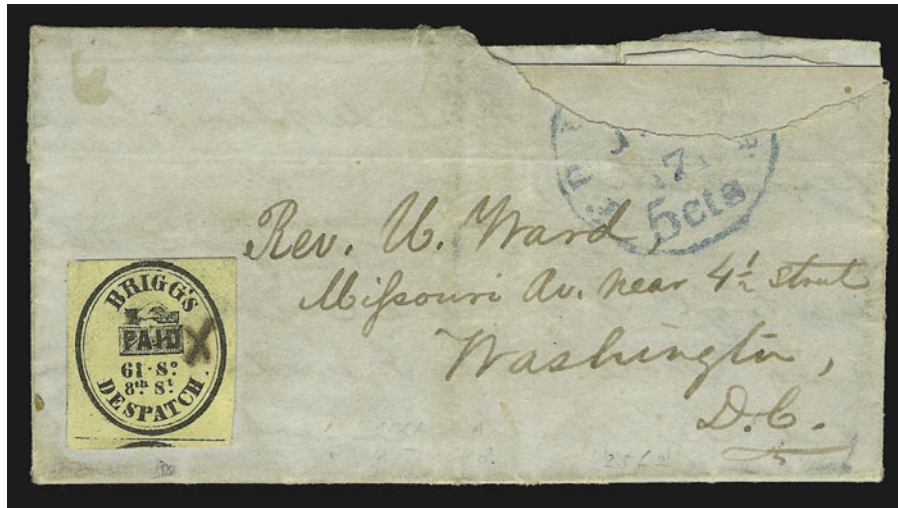 5cts
Rev. U. Ward,
Missouri Av. near 4½ street
Washington,
D.C.
BRIGG'S
PAID
X
61·So.
8th. St.
DESPATCH.